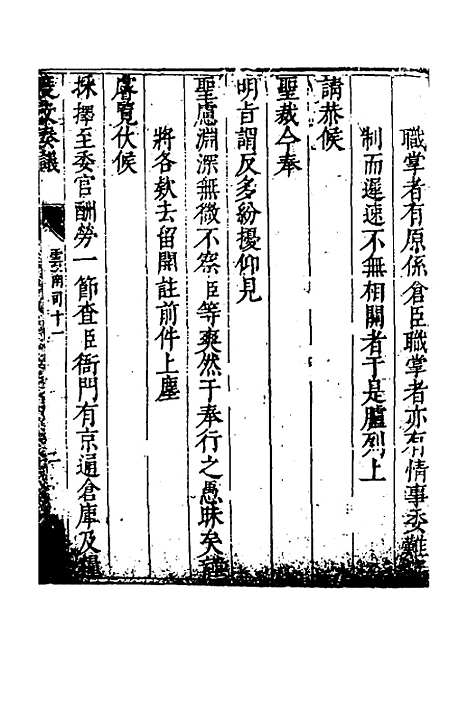 職掌者有原係倉臣職掌者亦有情事委難
制而遲速不無相關者于是臚列上
請恭候
聖裁今奉
明旨謂反多紛擾仰見
聖慮淵深無微不察臣等爽然于奉行之愚昧矣謹
將各欵去留開註前件上塵
睿覽伏候
採擇至委官酬勞一節查臣衙門有京通倉庫及糧
度支奏議 雲南司十一